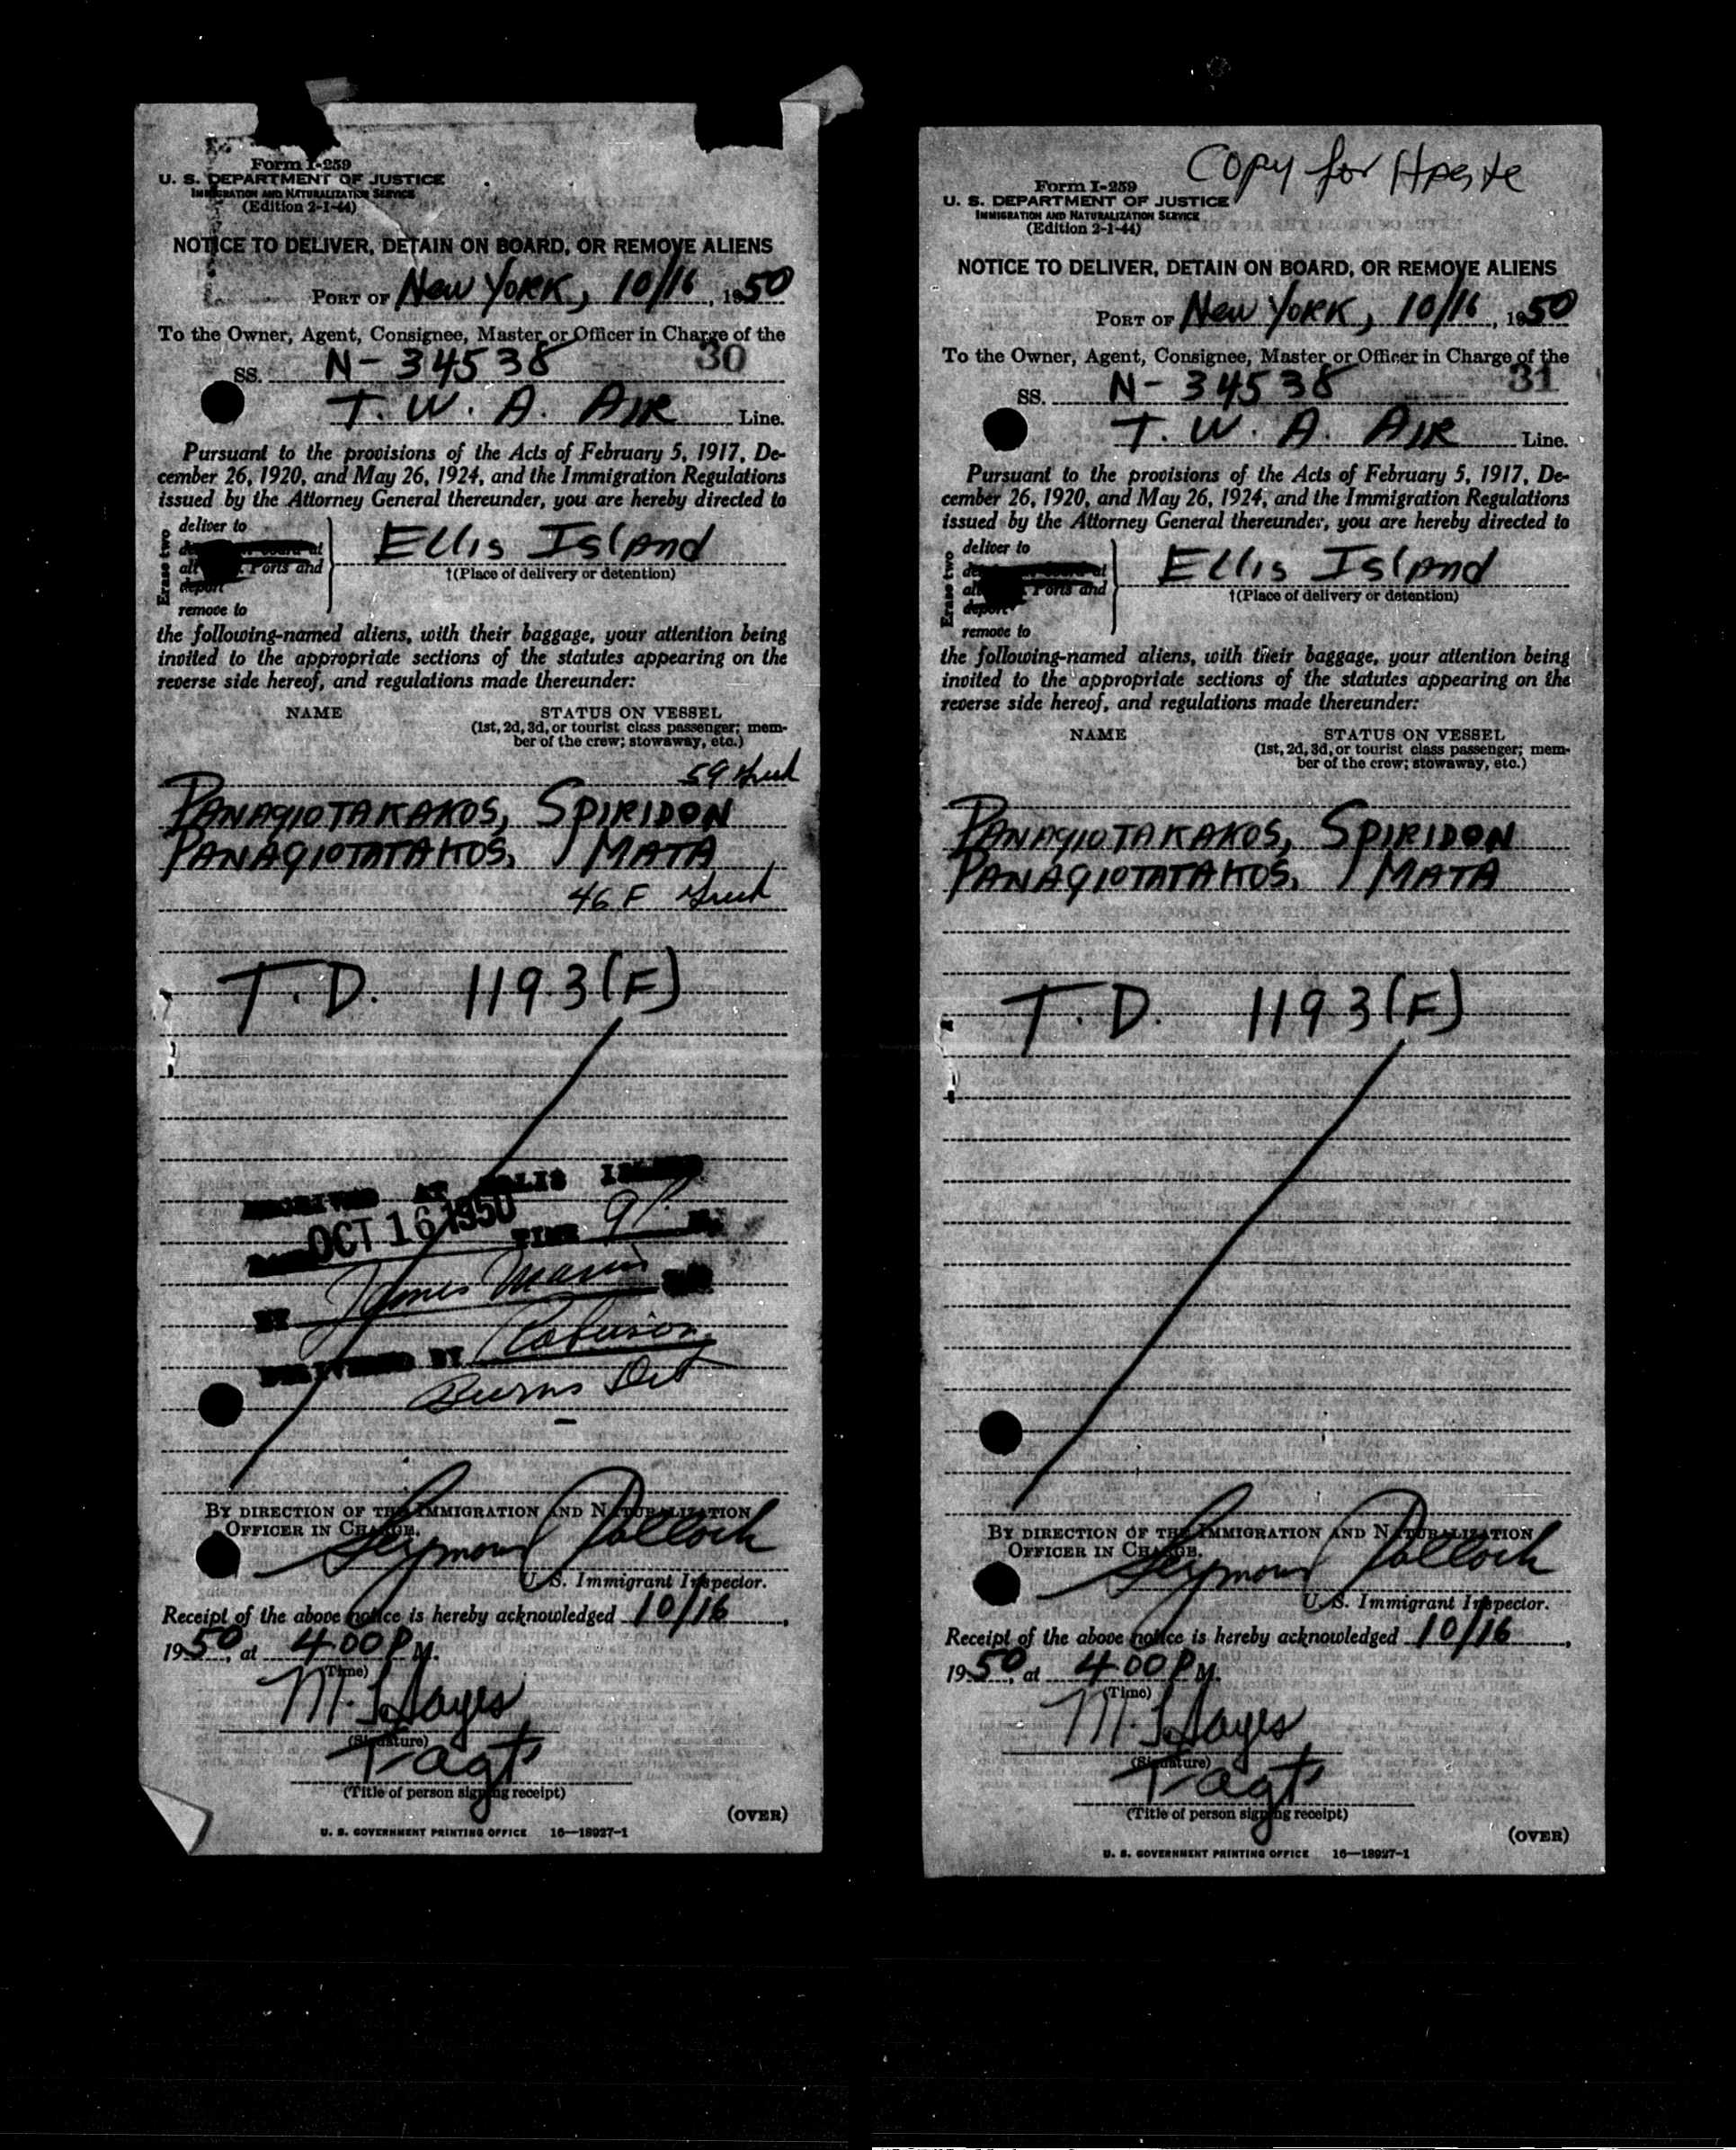 Form I-259
U. S. DEPARTMENT OF JUSTICE
IMMIGRATION AND NATURALIZATION SERVICE
(Edition 2-1-44)
NOTICE TO DELIVER, DETAIN ON BOARD, OR REMOVE ALIENS
PORT OF New York, 10/16, 1950
To the Owner, Agent, Consignee, Master or Officer in Charge of the
30
SS. N-34538
T. W. A. AIR Line.
Pursuant to the provisions of the Acts of February 5, 1917, De-
cember 26, 1920, and May 26, 1924, and the Immigration Regulations
issued by the Attorney General thereunder, you are hereby directed to
Erase two
deliver to
at
all Ports and
deport
remove to
Ellis Island
†(Place of delivery or detention)
the following-named aliens, with their baggage, your attention being
invited to the appropriate sections of the statutes appearing on the
reverse side hereof, and regulations made thereunder:
NAME STATUS ON VESSEL
(1st, 2d, 3d, or tourist class passenger; mem-
ber of the crew; stowaway, etc.)
59
PANAGIOTAKAKOS, SPIRIDON
PANAGIOTATAKOS, MATA
46 F
T.D. 1193(F)
RECEIVED AT ELLIS ISLAND
OCT 16 1950 TIME 9 P. M.
BY James
DELIVERED BY Robinson
Burns Det
BY DIRECTION OF THE IMMIGRATION AND NATURALIZATION
OFFICER IN CHARGE.
Seymour Pollock
U. S. Immigrant Inspector.
Receipt of the above notice is hereby acknowledged 10/16,
1950, at 4:00 P M.
(Time)
M. Hayes
(Signature)
T-agt
(Title of person signing receipt)
(OVER)
U. S. GOVERNMENT PRINTING OFFICE 16—18927-1
Copy for
Form I-259
U. S. DEPARTMENT OF JUSTICE
IMMIGRATION AND NATURALIZATION SERVICE
(Edition 2-1-44)
NOTICE TO DELIVER, DETAIN ON BOARD, OR REMOVE ALIENS
PORT OF New York, 10/16, 1950
To the Owner, Agent, Consignee, Master or Officer in Charge of the
31
SS. N-34538
T. W. A. AIR Line.
Pursuant to the provisions of the Acts of February 5, 1917, De-
cember 26, 1920, and May 26, 1924, and the Immigration Regulations
issued by the Attorney General thereunder, you are hereby directed to
Erase two
deliver to
at
all Ports and
deport
remove to
Ellis Island
†(Place of delivery or detention)
the following-named aliens, with their baggage, your attention being
invited to the appropriate sections of the statutes appearing on the
reverse side hereof, and regulations made thereunder:
NAME STATUS ON VESSEL
(1st, 2d, 3d, or tourist class passenger; mem-
ber of the crew; stowaway, etc.)
PANAGIOTAKAKOS, SPIRIDON
PANAGIOTATAKOS, MATA
T.D. 1193(F)
BY DIRECTION OF THE IMMIGRATION AND NATURALIZATION
OFFICER IN CHARGE.
Seymour Pollock
U. S. Immigrant Inspector.
Receipt of the above notice is hereby acknowledged 10/16,
1950, at 4:00 P M.
(Time)
M. Hayes
(Signature)
T-agt
(Title of person signing receipt)
(OVER)
U. S. GOVERNMENT PRINTING OFFICE 16—18927-1